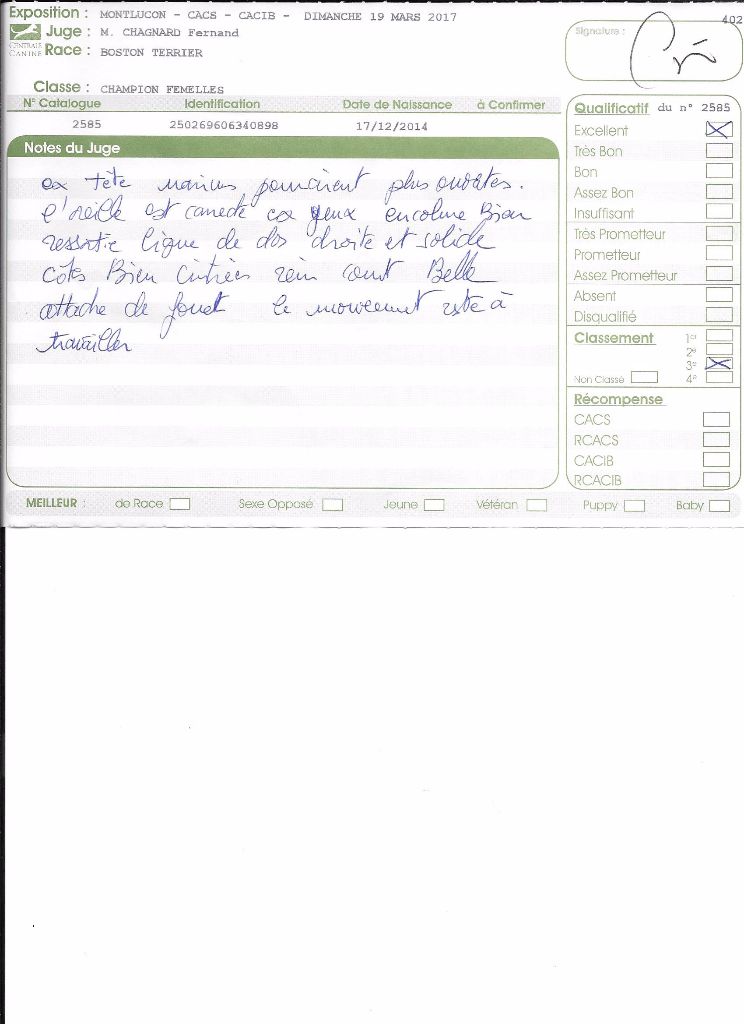 Exposition : MONTLUCON - CACS - CACIB - DIMANCHE 19 MARS 2017
402
CENTRALE CANINE
Juge : M. CHAGNARD Fernand
Race : BOSTON TERRIER
Signature :
Classe : CHAMPION FEMELLES
N° Catalogue Identification Date de Naissance à Confirmer
2585 250269606340898 17/12/2014
Notes du Juge
ex tête narines pourraient plus ouvertes.
l'oreille est correcte ex yeux encolure Bien
ressortie ligne de dos droite et solide
côtes Bien Cintrées rein court Belle
attache de fouet le mouvement reste à
travailler
Qualificatif du n° 2585
Excellent
Très Bon
Bon
Assez Bon
Insuffisant
Très Prometteur
Prometteur
Assez Prometteur
Absent
Disqualifié
Classement 1er
2e
3e
Non Classé 4e
Récompense
CACS
RCACS
CACIB
RCACIB
MEILLEUR : de Race Sexe Opposé Jeune Vétéran Puppy Baby